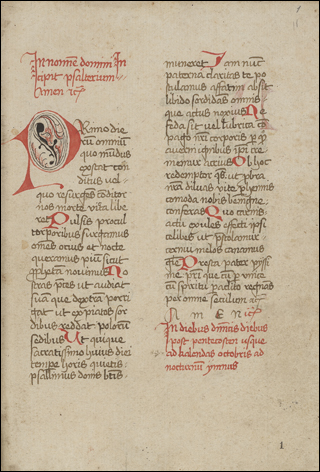 In nomine domini In
cipit psalterium
Amen
PRimo die
rū omniū
quo mūdus
extat con
ditus vel
quo resurgēs cōditor
nos morte victa libe
ret Pulsis procul
torporibus surgamus
omēs ocius et nocte
queramus piū sicut
ꝓphetā novimus No
stras p̄ces ut audiat
suā que dextrā porri
gat ut expiatos sor
dibus reddat polorū
sedibus Ut quique
sacratissimo huius diei
tempē horis quietis
psallimus donis btīs
muneret Iam nūc
paterna claritas te po
stulamus affatim absit
libido sordidans omnis
que actus noxius Ne
feda sit vel lubrica cō
pago nr̄i corporis ꝑ q̄
averni ignibus ip̄i cre
memur acrius Ob hoc
redemptor qs̄ ut probra
nr̄a diluas vite ꝑhennis
comoda nobis benigne
conferas Quo carnis
actu exules effecti ipsi
celibes ut p̄stolamur
cernui melos canamus
glīe Presta pater pijssi
me
cū spiritu paclito regnās
per omne seculum
AmEN
In diebus dominicis diebus
post pentecosten usque
ad kalendas octobris ad
nocturnū ymnus
1